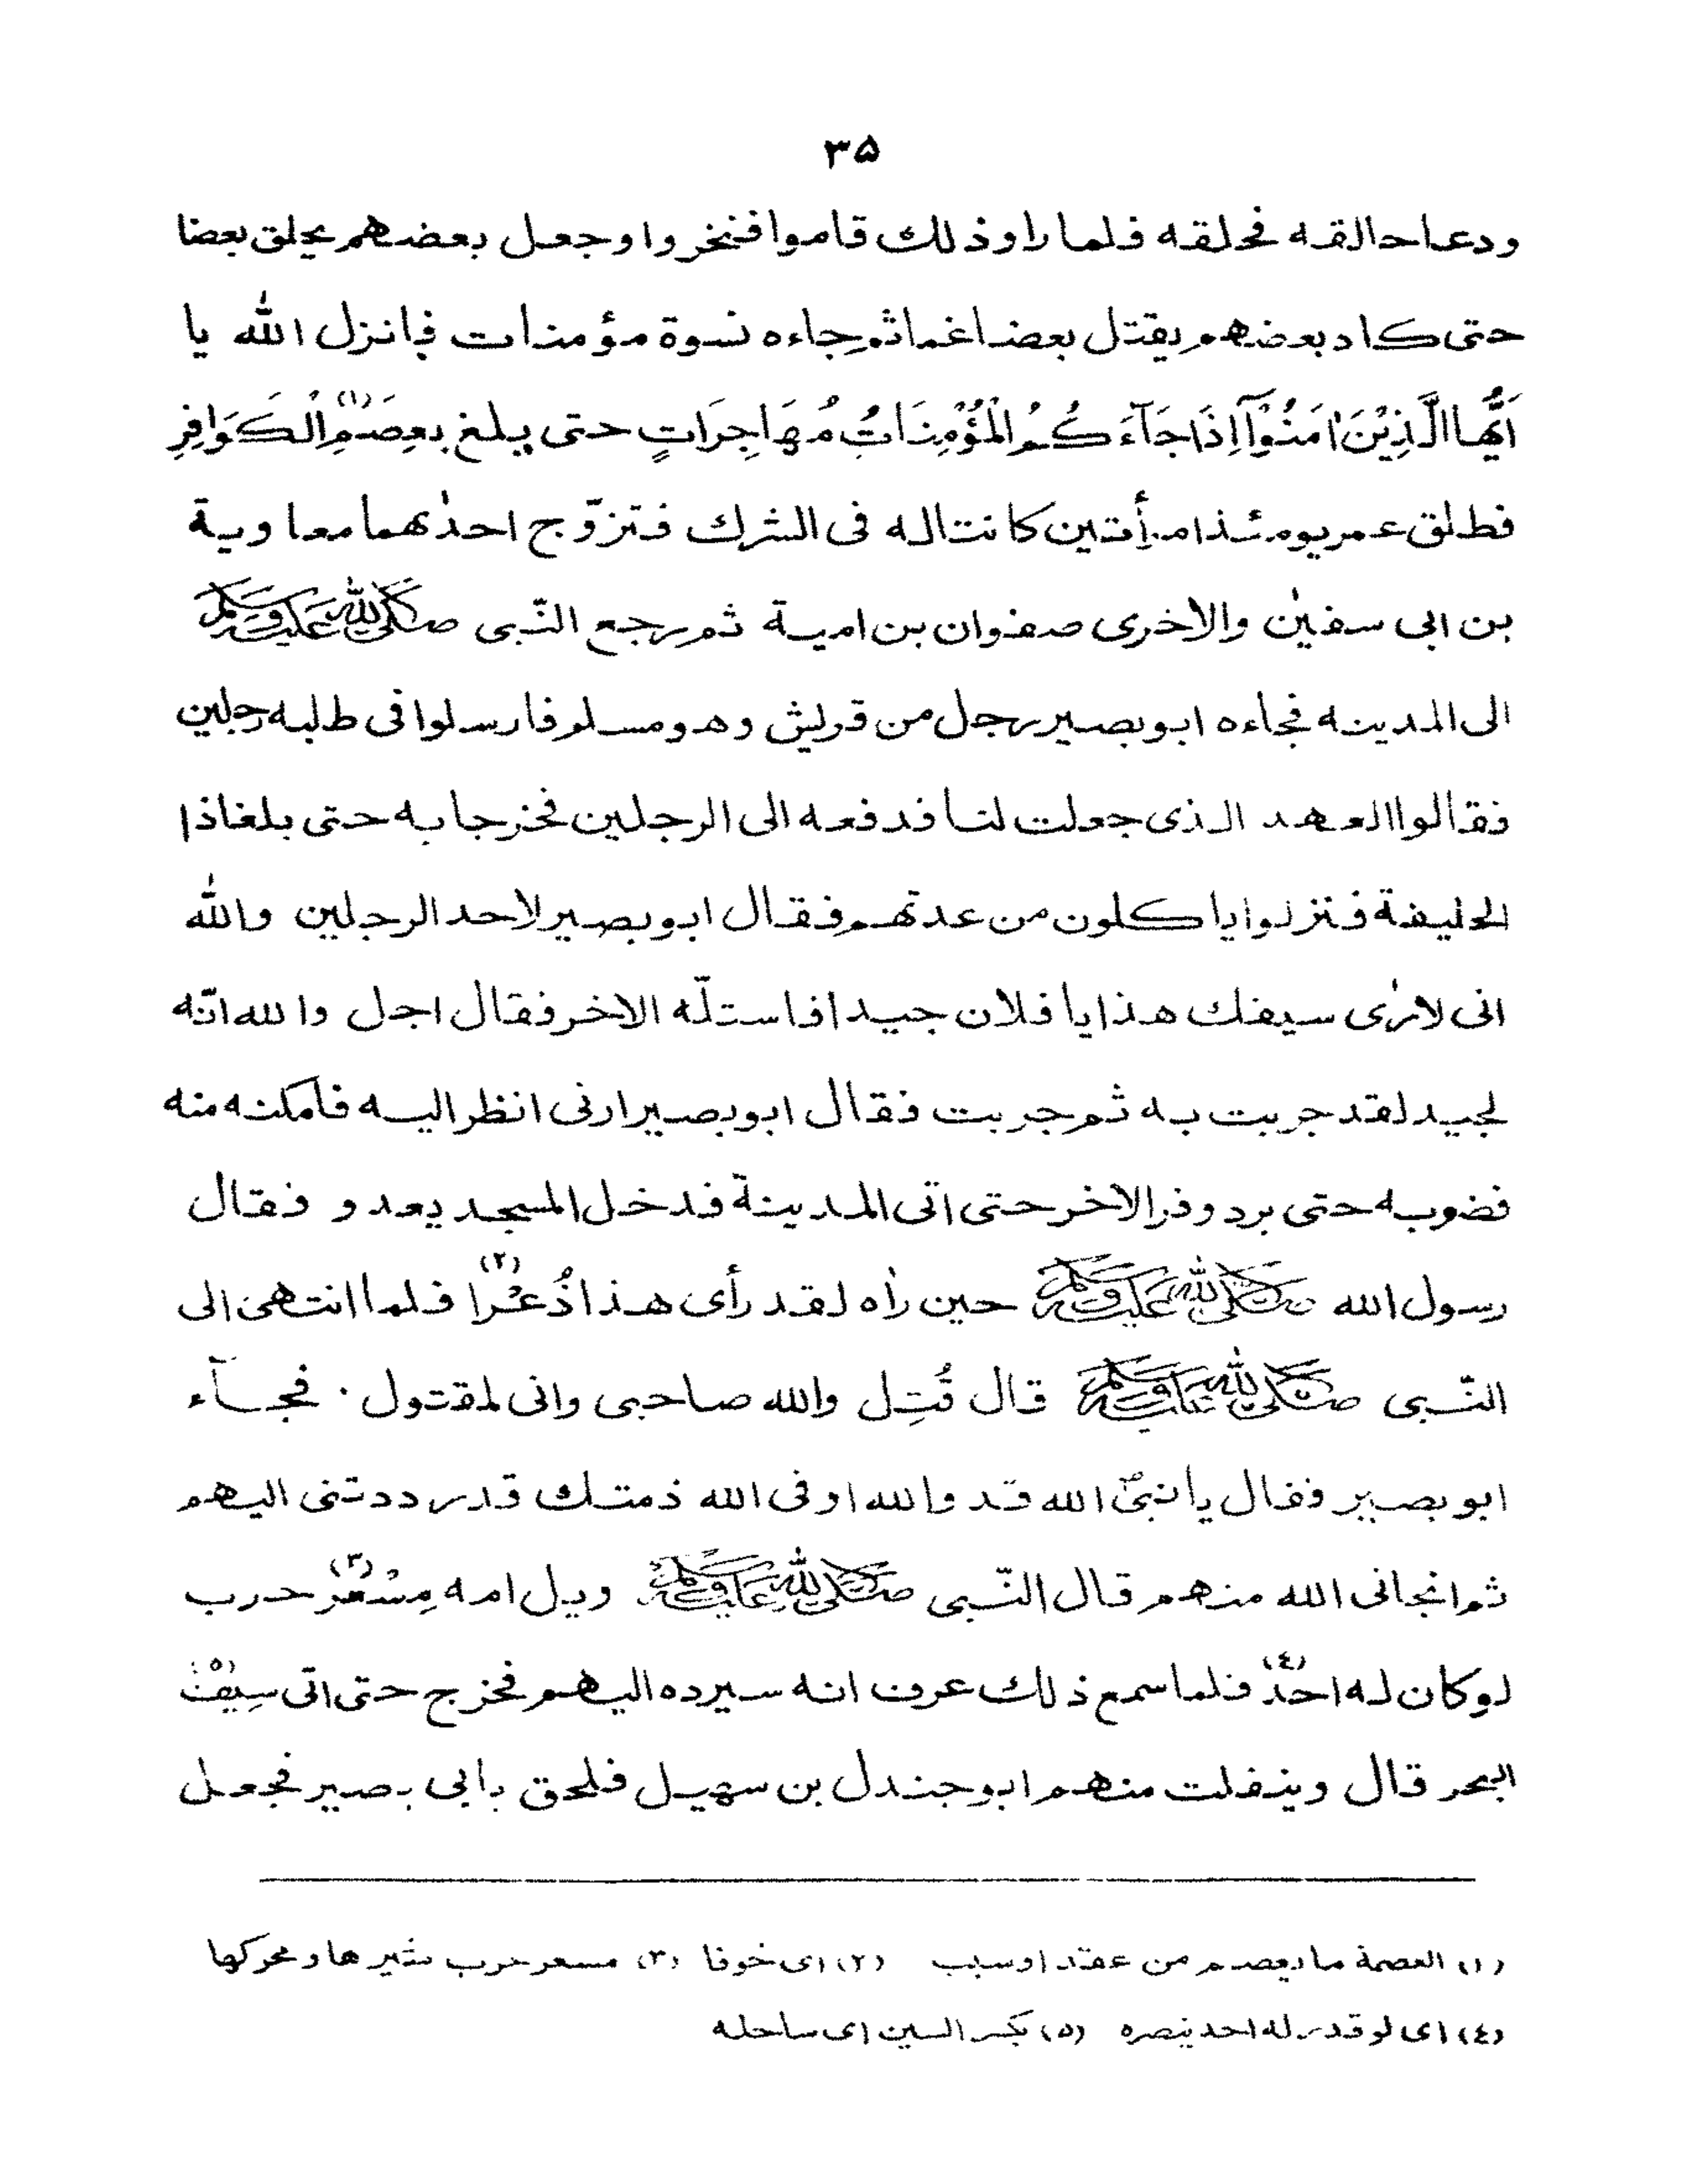 ٣۵
ودعا حالقه فحلقه فلما راوذلك قاموا فنخروا وجعل بعضهم يحلق بعضا
حتى كاد بعضهم يقتل بعضا غما ثم جاءه نسوة مؤمنات فانزل الله يا
اَيُّهَا الَّذِيْنَ اٰمَنُوْآ اِذَا جَآءَكُمُ الْمُؤْمِنَاتُ مُهَاجِرَاتٍ حتى يبلغ بِعِصَمِ(١) الْكَوَافِرِ
فطلق عمر يومئذ امرأتين كانتا له فى الشرك فتزوّج احدٰهما معاوية
بن ابى سفيٰن والاخرى صفوان بن امية ثم رجع النّبى صلى الله عليه وسلم
الى المدينه فجاءه ابوبصير رجل من قريش وهو مسلم فارسلوا فى طلبه رجلين
فقالوا العهد الذى جعلت لنا فدفعه الى الرجلين فخرجا به حتى بلغا ذا
الحليفة فنزلوا يا كلون من عدتهم فقال ابوبصير لاحد الرجلين والله
انى لارٰى سيفك هذا يا فلان جيدا فاستلّه الاخر فقال اجل والله انّه
لجيد لقد جربت به ثم جربت فقال ابوبصير ارنى انظر اليه فامكنه منه
فضوبه حتى برد وفر الاخر حتى اتى المدينة فدخل المسجد يعدو فقال
رسول الله صلى الله عليه وسلم حين رأه لقد رأى هذا ذُعْرا(٢) فلما انتهى الى
النّبى صلى الله عليه وسلم قال قُتِل والله صاحبى وانى لمقتول ۰ فجآء
ابوبصير فقال يا نبىّ الله قد والله اوفى الله ذمتك قد رددتنى اليهم
ثم انجانى الله منهم قال النّبى صلى الله عليه وسلم ويل امه مِسْعر(٣) حرب
لو كان له احد(٤) فلما سمع ذلك عرف انه سيرده اليهم فخرج حتى اتى سِيْف(٥)
البحر قال وينفلت منهم ابوجندل بن سهيل فلحق بابى بصير فجعل
(١) العصمة ما يعصم من عقد او سبب (٢) اى خوفا (٣) مسعر حرب مثير ها و محركها
(٤) اى لو قدر له احد ينصره (٥) بكسر السين اى ساحله